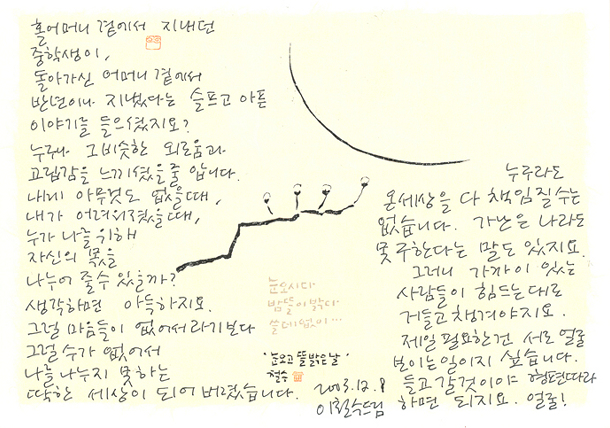 홀어머니 곁에서 지내던
중학생이,
돌아가신 어머니 곁에서
반년이나 지냈다는 슬프고 아픈
이야기를 들으셨지요?
누구나 그 비슷한 외로움과
고립감을 느끼셨을 줄 압니다.
내게 아무것도 없을 때,
내가 어려워졌을 때,
누가 나를 위해
자신의 몫을
나누어 줄 수 있을까?
생각하면 아득하지요.
그럴 마음들이 없어서라기보다
그럴 수가 없어서
나를 나누지 못하는
딱한 세상이 되어 버렸습니다.
눈오시다
밤뜰이 밝다
쓸데없이…
'눈오고 뜰 밝은 날'
철수
누구라도
온세상을 다 책임질 수는
없습니다. 가난은 나라도
못 구한다는 말도 있지요.
그러니 가까이 있는
사람들이 힘드는대로
거들고 챙겨야지요.
제일 필요한 건 서로 얼굴
보이는 일이지 싶습니다.
들고 갈 것이야 형편따라
하면 되지요. 얼굴!
2003.12.8
이철수드림